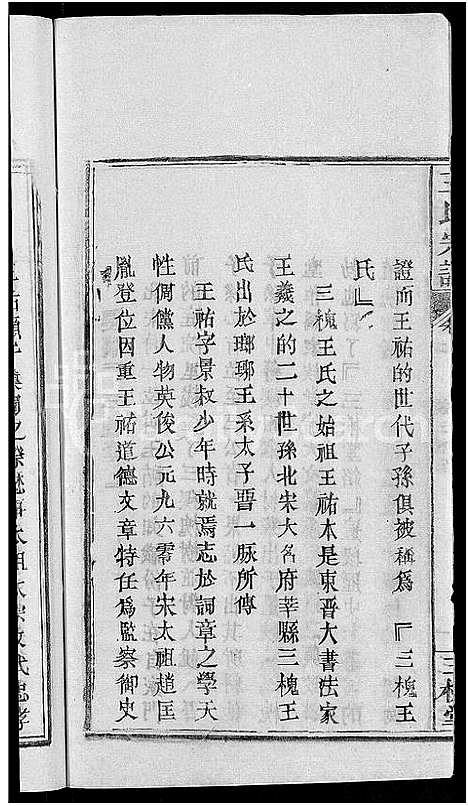 王氏宗譜
三槐堂
證而王祐的世代子孫俱被稱爲『三槐王
氏』
三槐王氏之始祖王祐本是東晋大書法家
王羲之的二十世孫北宋大名府莘縣三槐王
氏出於瑯琊王系太子晋一脉所傳
王祐字景叔少年時就焉志於詞章之學天
性倜儻人物英俊公元九六零年宋太祖趙匡
胤登位因重王祐道德文章特任爲監察御史